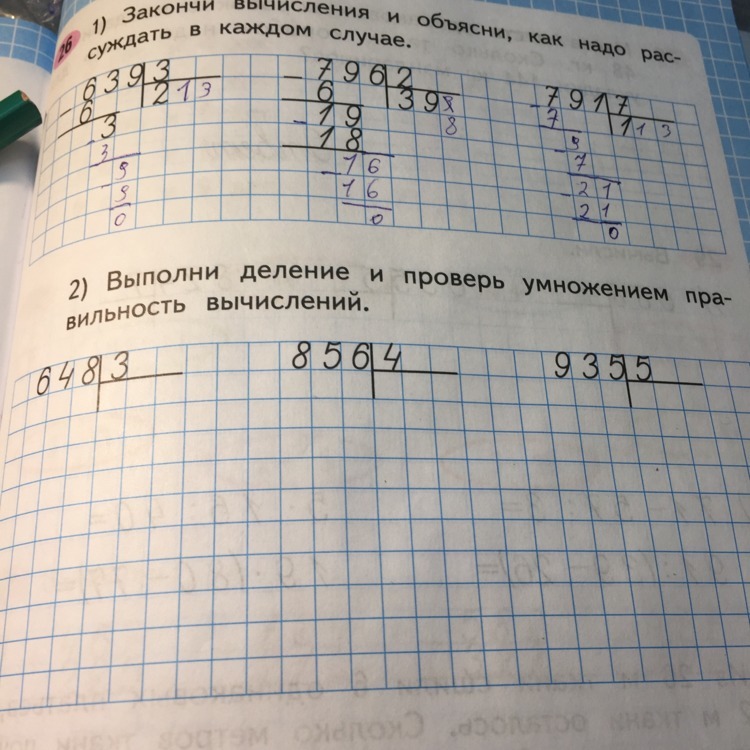 26 1) Закончи вычисления и объясни, как надо рас-
суждать в каждом случае.
639 3 796 2 791 7
6 213 6 398 7 113
3 19 8 9
3 18 7
9 16 21
9 16 21
0 0 0
2) Выполни деление и проверь умножением пра-
вильность вычислений.
648 3 856 4 935 5